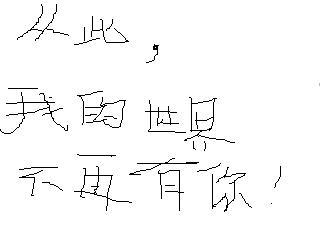 从此，
我的世界
不再有你！